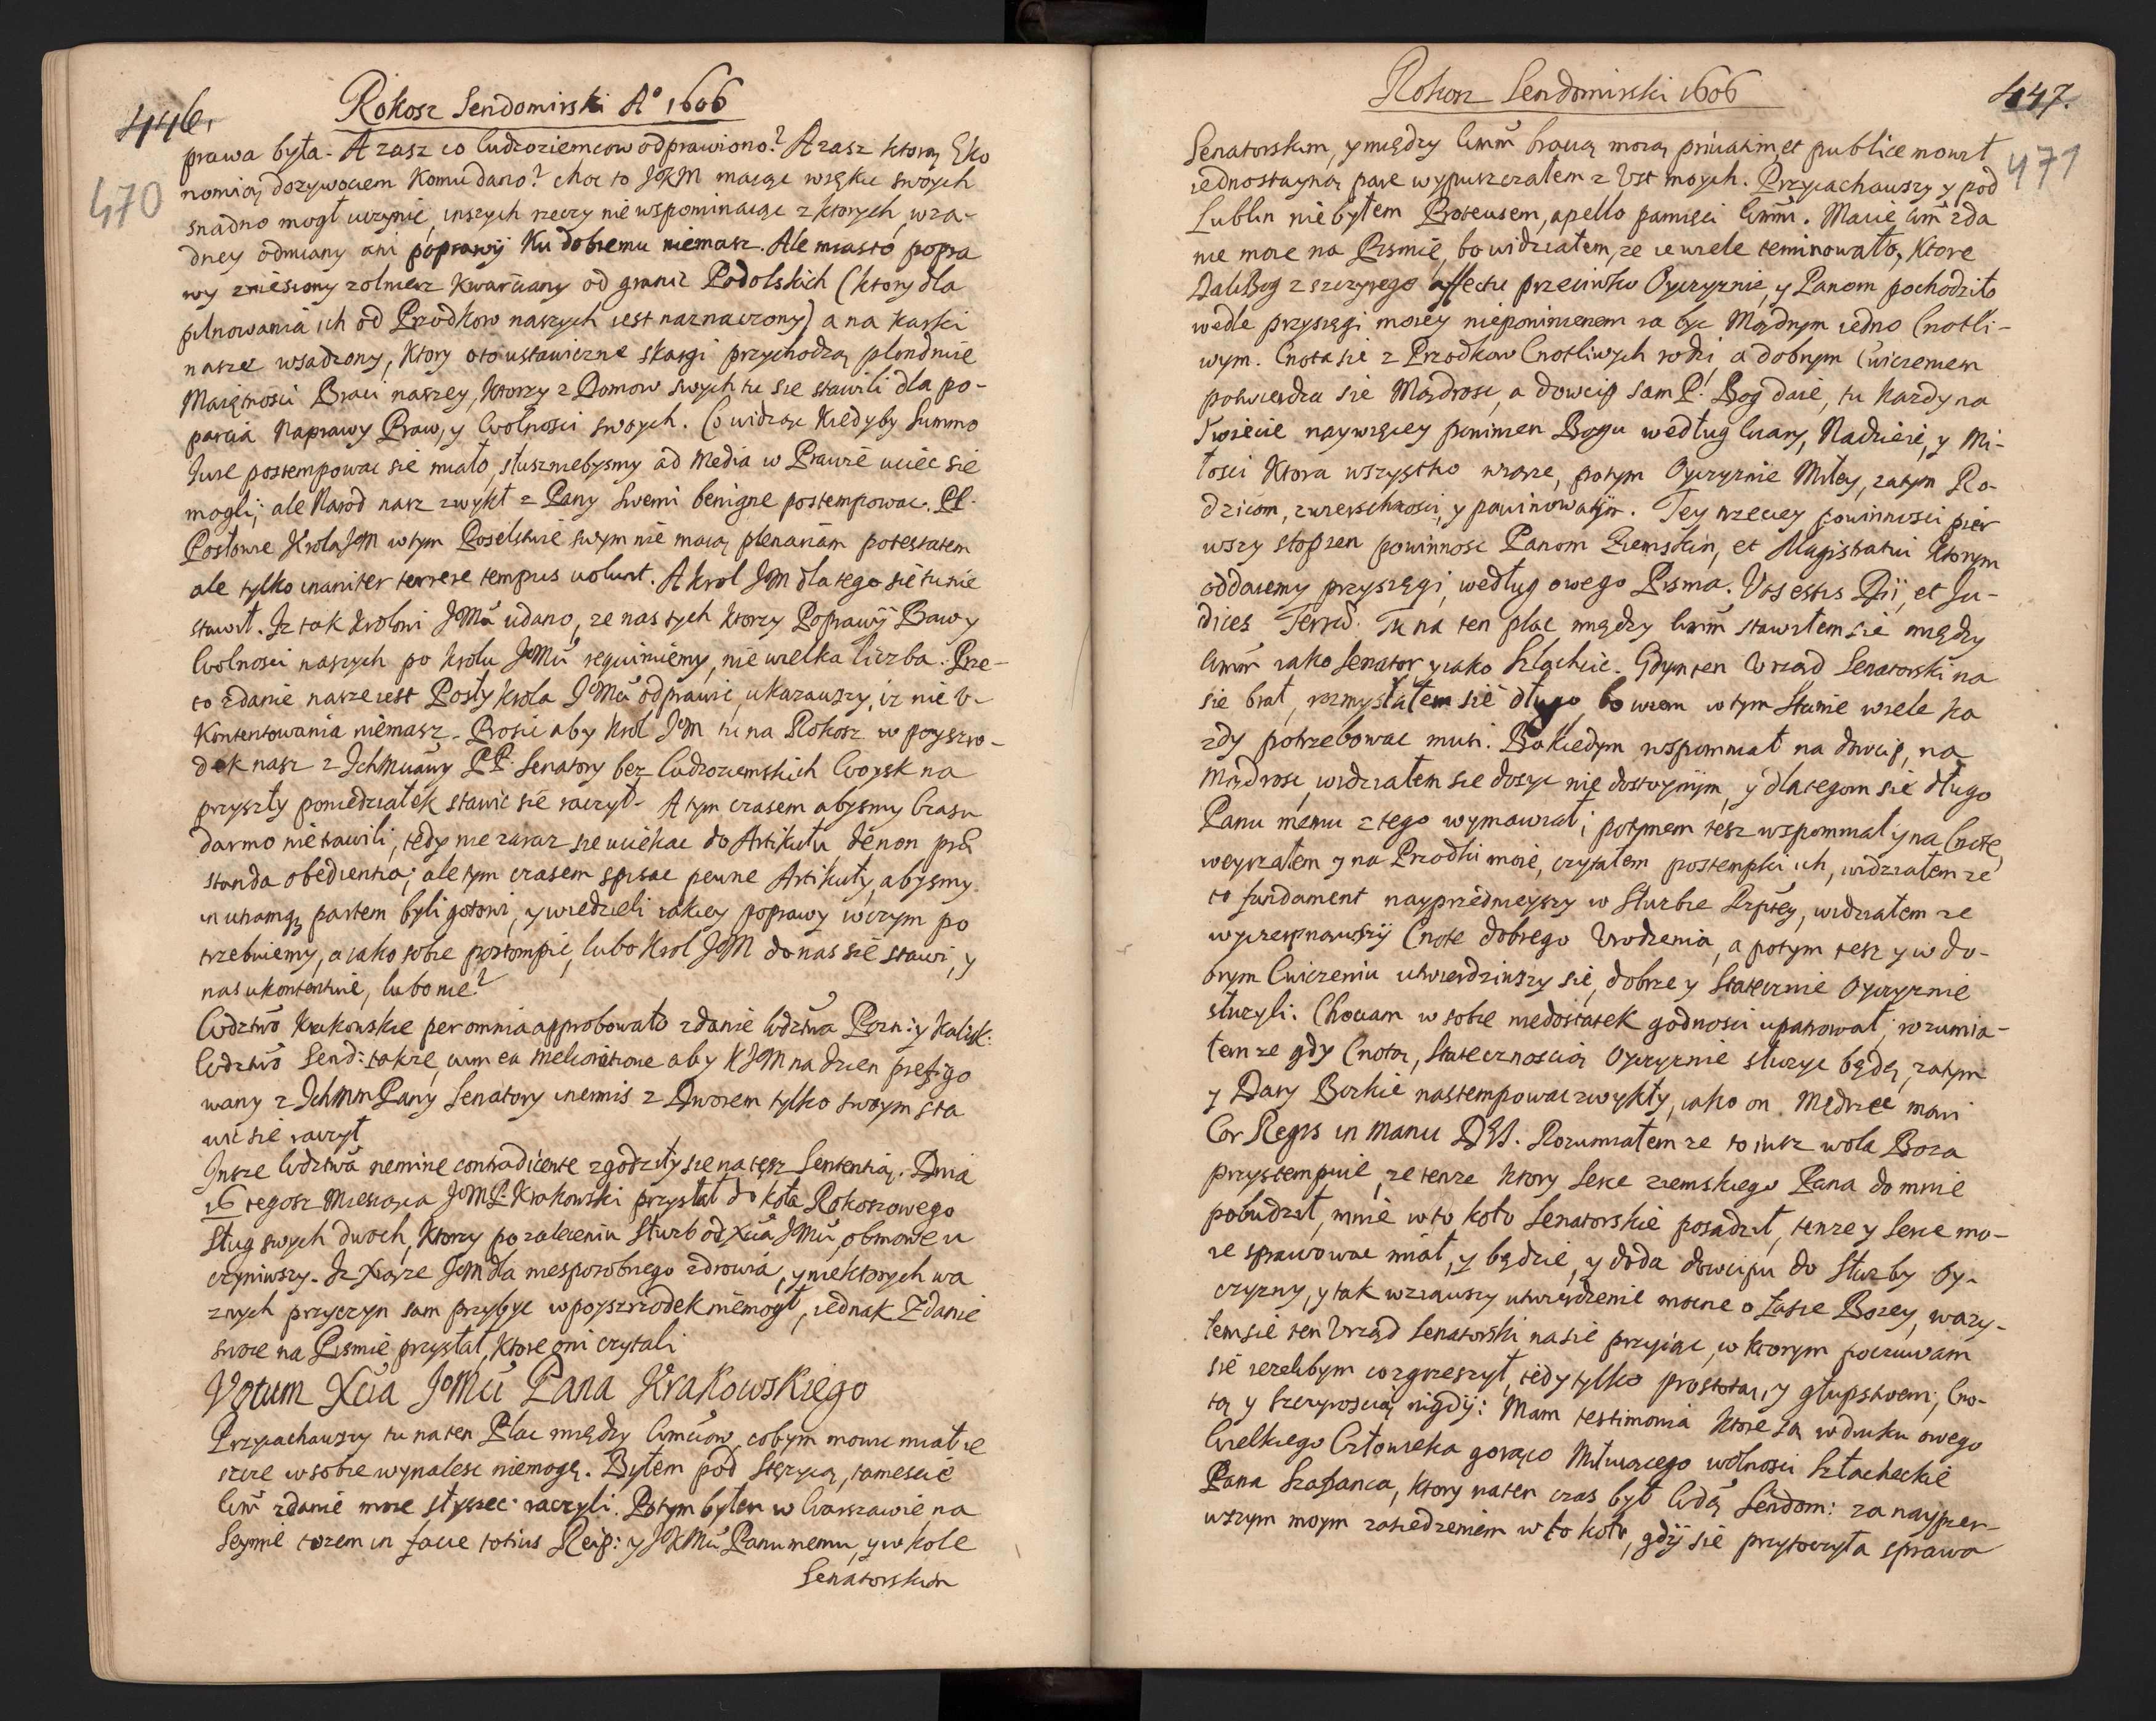 446.
Rokosz Sendomirski A° 1606
470
prawa była. A zasz co Cudzoziemcow odprawiono? A zasz ktorą Eko
nomią dozywociem Komu dano? choc to JKM maiąc w ręku swoych
snadno mogł uczynic, inszych rzeczy nie wspominaiąc z ktorych, w za-
dney odmiany ani poprawÿ Ku dobremu niemasz. Ale miasto popra
wy zniesiony zolnierz Kwarciany od granic Podolskich (ktory dla
pilnowania ich od Przodkow naszych iest naznaczony) a na Karki
nasze wsadzony, Ktory oto ustawiczne skargi przychodzą plondruie
Maiętnosci Braci naszey, Ktorzy z Domow swych tu sie stawili dla po-
parcia Naprawy Praw, y Wolnosci swoych. Co widząc Kiedyby Summo
Jure postempowac sie miało, słusznie bysmy ad Media w Prawie uciec sie
mogli; ale Narod nasz zwykł z Pany Swemi benigne postempowac. PP.
Posłowie Krola JM w tym Poselstwie swym nie maią plenariam potestatem
ale tylko inaniter terrere tempus volunt. A Krol JM dla tego sie tu nie
stawił. Iz tak Krolowi JMći udano, ze nas tych Ktorzy PoprawÿPraw y
Wolnosci naszych po Krolu JMći requiruiemy, nie wielka liczba. Prze-
to zdanie nasze iest Posły Krola JMći odprawic, ukazawszy, iz nie V-
Kontentowania niemasz. Prosic aby Krol JM tu na Rokosz w poyszro-
dek nasz z Ichmciámy PP. Senatory bez Cudzoziemskich Woysk na
przyszły poniedziałek stawic sie raczył. A tym czasem abysmy Czasu
darmo nie tawili, tedy nie zaraz sie uciekac do Artikułu de non præ
standa obedientia; ale tym czasem spisac pewne Artikuły, abysmy
in utramq; partem byli gotowi, y wiedzieli iakiey poprawy w czym po
trzebuiemy, a iako sobie postompic, lubo Krol JM do nas sie stawi, y
nas ukontentuie, lubo nie?
Wdztwo Krakowskie per omnia approbowało zdanie Wdztwa Pozn: y Kalisk:
Wdztwo Send: takze, cum ea melioratione aby KJM na dzien prefigo
wany z Ichmm Pany Senatory inermis z Dworem tylko swoym sta
wic sie raczył
Insze Wdztwa nemine contradicente zgodziły sie na tęsz Sententią. Dnia
16 tegosz Miesiąca JMP. Krakowski przysłał do Koła Rokoszowego
Sług swych dwoch, Ktorzy po zaleceniu Słuzb od Xcia JMći, obmowe u
czyniwszy. Iz Xiąze JM dla niesposobnego zdrowia, y niektorych wa
znych przyczyn sam przybyc w poyszrzodek niemogł, iednak Zdanie
swoie na Pismie przysłał, Ktore oni czytali
Votum Xcia JMći Pana Krakowskiego
Przyiachawszy tu na ten Plac między Wmciow, cobym mowic miał ie
szcze w sobie wynalesc niemogę. Byłem pod Stęzycą, tamescie
Wm̃ zdanie moie słyszec raczyli. Potym byłem w Warszawie na
Seymie tozem in facie totius Reip: y JKMći Panu memu, y w Kole
Senatorskim
Rokosz Sendomirski 1606
447.
471
Senatorskim, y między Wmm̃ bracią moią priuatim, et publice mowił
iednostayną parę wypuszczałem z Ust moych. Przyiachawszy y pod
Lublin nie byłem Proteusem, apello pamięci Wmm̃. Macie Wm̃ zda
nie moie na Pismie, bo widziałem, ze ie wiele teminowało, Ktore
DaliBog z szczyrego affectu przeciwko Oyczyznie, y Panom pochodziło
wedle przysięgi moiey niepowinienem ia byc Mądrym iedno Cnotli-
wym. Cnota sie z Przodkow Cnotliwych rodzi, a dobrym Cwiczeniem
potwierdza sie Mądrosc, a dowcip sam P. Bog daie, tu Kazdy na
Swiecie naywięcey powinien Bogu według Wiary, Nadzieie, y Mi-
łosci Ktora wszystko wiąze, potym Oyczyznie Miłey, zatym Ro-
dzicom, zwierschnosci, y powinowatÿm. Tey rzeciey powinnosci pier
wszy stopien powinnosc Panom Ziemskim, et Magistratui Ktorym
oddaiemy przysięgi, według owego Pisma. Vos estis Dii, et Ju-
dices Terræ. Tu na ten plac między Wmm̃ stawiłem sie między
Wmm̃ iako Senator y iako Szlachcic. Gdym ten Urząd Senatorski na
sie brał, rozmyslałem sie długo bowiem w tym Stanie wiele ka
zdy potrzebowac musi. Bo kiedym wspomniał na dowcip, na
Mądrosc, widziałem sie dosyc nie dostoynÿm, y dlategom sie długo
Panu memu z tego wymawiał; potymem tesz wspomniał y na Cnotę,
weyrzałem y na Przodki moie, czytałem postempki ich, widziałem ze
to fundament nayprzednieyszy w Słuzbie Rzpltey, widziałem ze
wyczerpnąwszÿ Cnotę dobrego Urodzenia, a potym tesz y w do-
brym Cwiczeniu utwierdziwszy sie, dobrze y Statecznie Oyczyznie
słuzyli. Chociam w sobie niedostatek godnosci upatrował, rozumia-
łem ze gdy Cnotą, Statecznoscią Oyczyznie słuzyc będę, zatym
y Dary Boskie nastempowac zwykły, iako on Mędrzec mowi
Cor Regis in Manu DEI. Rozumiałem ze to iusz wola Boza
przystempuie, ze tenze Ktory Serce ziemskiego Pana do mnie
pobudził, mnie w to Koło Senatorskie posadził, tenze y Serce mo-
ie sprawowac miał, y będzie, y doda dowcipu do Słuzby Oy-
czyzny, y tak wziąwszy utwierdzenie mocne o Łasce Bozey, wazy-
łem sie ten Urząd Senatorski na sie przyiąc, w ktorym poczuwam
sie iezelibym co zgrzeszył, tedy tylko prostotą, y głupstwem, Cno-
tą y Szczyroscią nigdÿ: Mam testimonia Ktore są w druku owego
Wielkiego Człowieka gorąco Miłuiącego wolnosci Szlacheckie
Pana Szafranca, Ktory na ten czas był Wdą Sendom: za nayper-
wszym moym zasiedzeniem w to Koło, gdÿ sie przytoczyła sprawa